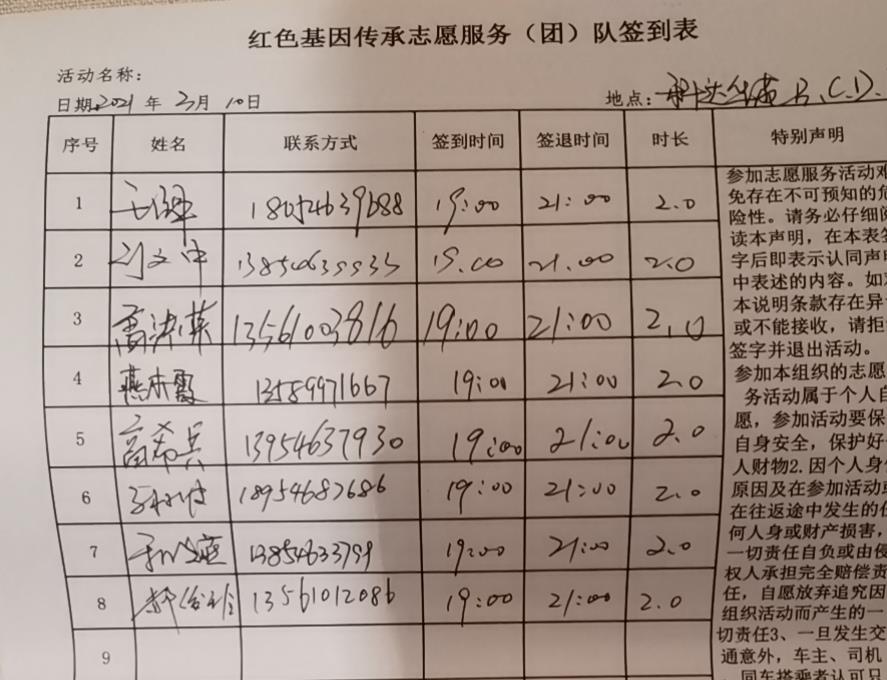 红色基因传承志愿服务（团）队签到表
活动名称：
日期：2021 年 3月 10日
地点： B、C、D、
序号 姓名 联系方式 签到时间 签退时间 时长 特别声明
1 18054639688 19:00 21:00 2.0
2 刘文中 19.00 21.00 2.0
3 13561003816 19:00 21:00 2.0
4 燕木霞 13589971667 19:00 21:00 2.0
5 13954637930 19:00 21:00 2.0
6 18954682686 19:00 21:00 2.0
7 13854633799 19:00 21:00 2.0
8 13561012086 19:00 21:00 2.0
9
参加志愿服务活动难
免存在不可预知的危
险性。请务必仔细阅
读本声明，在本表签
字后即表示认同声明
中表述的内容。如对
本说明条款存在异
或不能接收，请拒
签字并退出活动。
参加本组织的志愿
务活动属于个人自
愿，参加活动要保
自身安全，保护好
人财物2.因个人身
原因及在参加活动或
在往返途中发生的任
何人身或财产损害，
一切责任自负或由侵
权人承担完全赔偿责
任，自愿放弃追究因
组织活动而产生的一
切责任3、一旦发生交
通意外，车主、司机
、同车搭乘者认可只